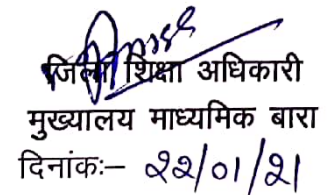 जिला शिक्षा अधिकारी
मुख्यालय माध्यमिक बारा
दिनांकः– २२/०१/२१